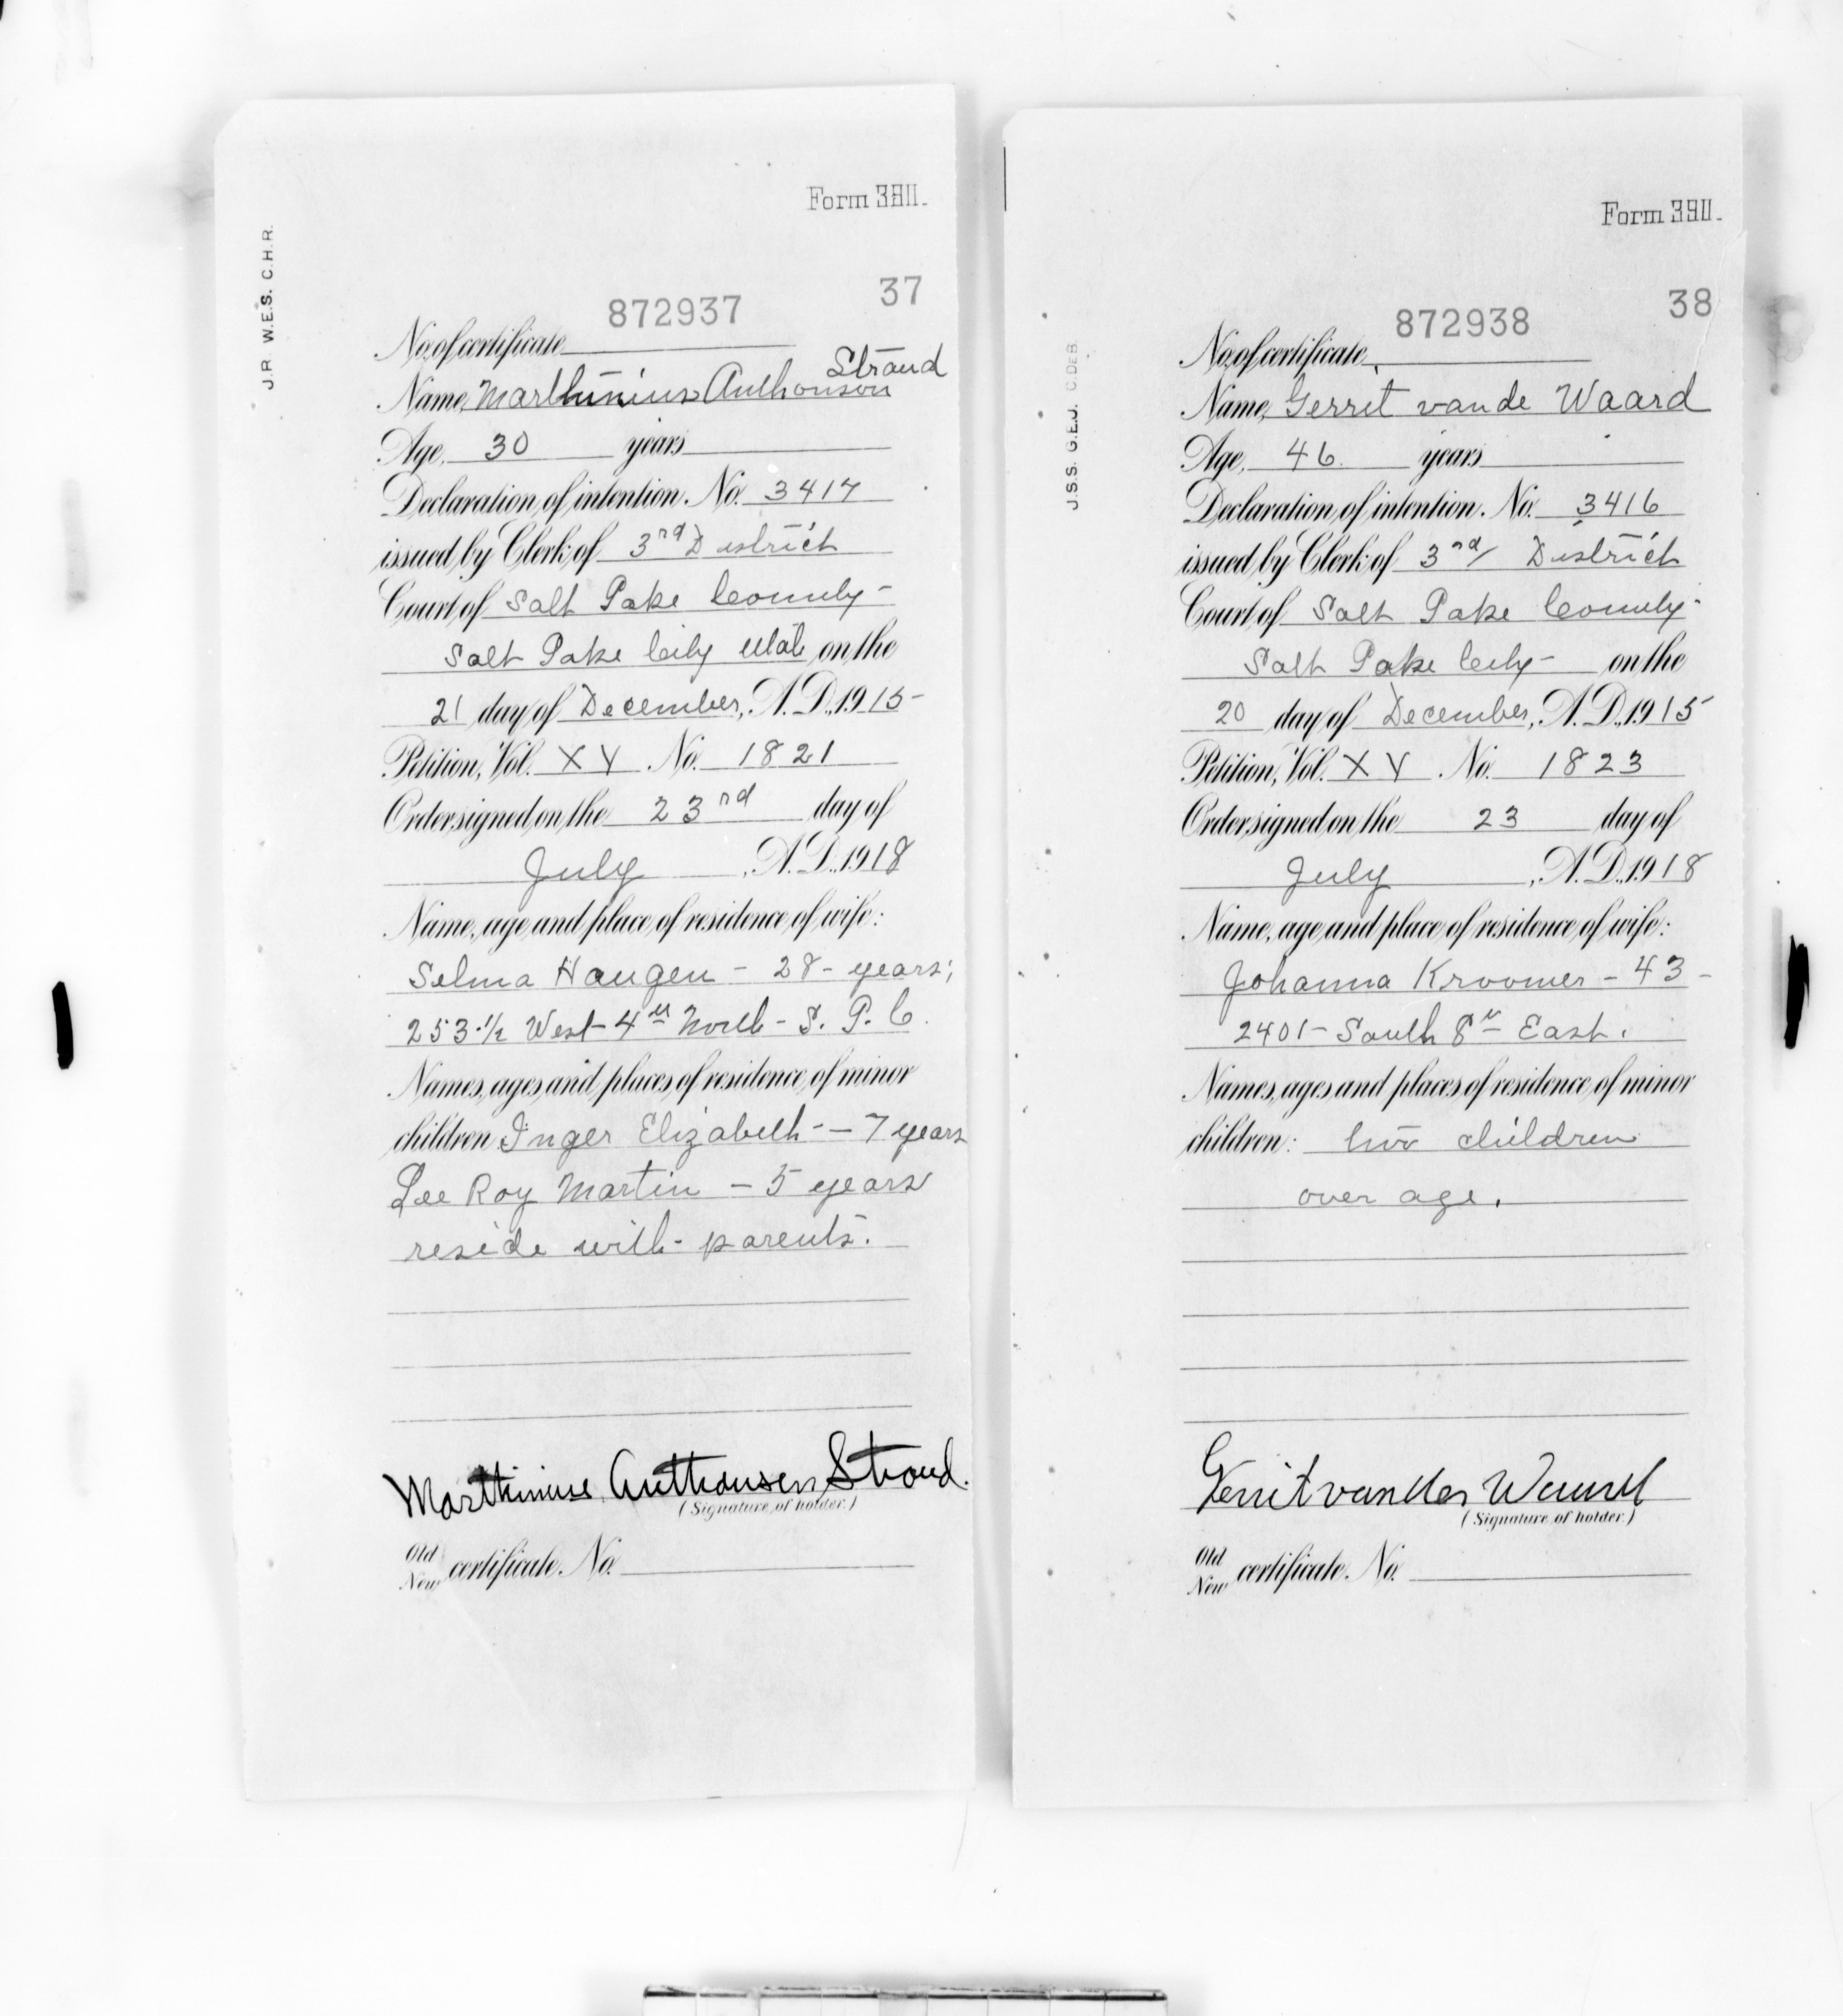 Form 3911.
J.R. W.E.S. C.H.R.
37
872937
No. of certificate
Strand
Name, Marthinius Anthonson
Age, 30 years
Declaration of intention, No. 3417
issued by Clerk of 3rd District
Court of Salt Lake County-
Salt Lake City Utah on the
21 day of December, A.D., 1915-
Petition, Vol. XV No. 1821
Order signed on the 23rd day of
July, A.D., 1918
Name, age and place of residence of wife:
Selma Haugen - 28 - years;
253 1/2 West - 4th North - S. L. C.
Names, ages and places of residence of minor
children Inger Elizabeth - - 7 years
Lee Roy Martin - 5 years
reside with - parents.
Marthinius Anthonsen Strand.
(Signature of holder.)
Old
New certificate. No.
Form 3911.
J.S.S. G.E.J. C.DEB.
38
872938
No. of certificate,
Name, Gerret van de Waard
Age, 46 years
Declaration of intention, No. 3416
issued by Clerk of 3rd District
Court of Salt Lake County-
Salt Lake City - on the
20 day of December, A.D., 1915
Petition, Vol. XV No. 1823
Order signed on the 23 day of
July, A.D., 1918
Name, age and place of residence of wife:
Johanna Kroomer - 43 -
2401 - South 8th East.
Names, ages and places of residence of minor
children: two children
over age.
Gerrit van der Waard
(Signature of holder.)
Old
New certificate. No.